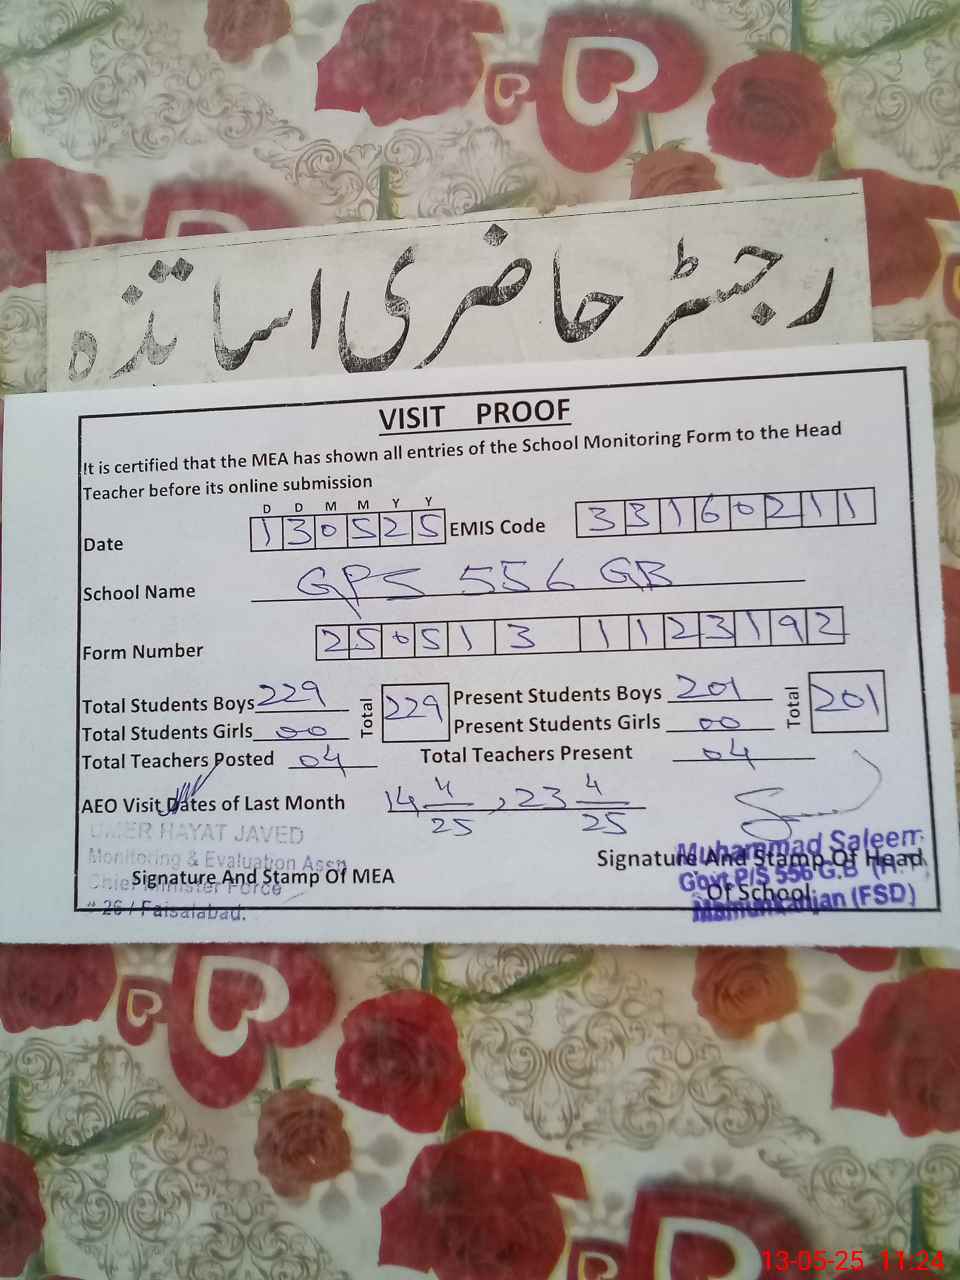 رجسٹر حاضری اساتذہ
VISIT PROOF
It is certified that the MEA has shown all entries of the School Monitoring Form to the Head
Teacher before its online submission
D D M M Y Y
Date 1 3 0 5 2 5 EMIS Code 3 3 1 6 0 2 1 1
School Name GPS 556 GB
Form Number 2 5 0 5 1 3 1 1 2 3 1 9 2
Total Students Boys 229 Total 229 Present Students Boys 201 Total 201
Total Students Girls 00 Present Students Girls 00
Total Teachers Posted 04 Total Teachers Present 04
AEO Visit Dates of Last Month 14 4/25, 23 4/25
UMER HAYAT JAVED
Monitoring & Evaluation Assn
Chief Minister Force
# 26 / Faisalabad.
Signature And Stamp Of MEA
Muhammad Saleem
Govt P/S 556 G.B
Mamunkanjan (FSD)
Signature And Stamp Of Head
Of School
13-05-25 11:24